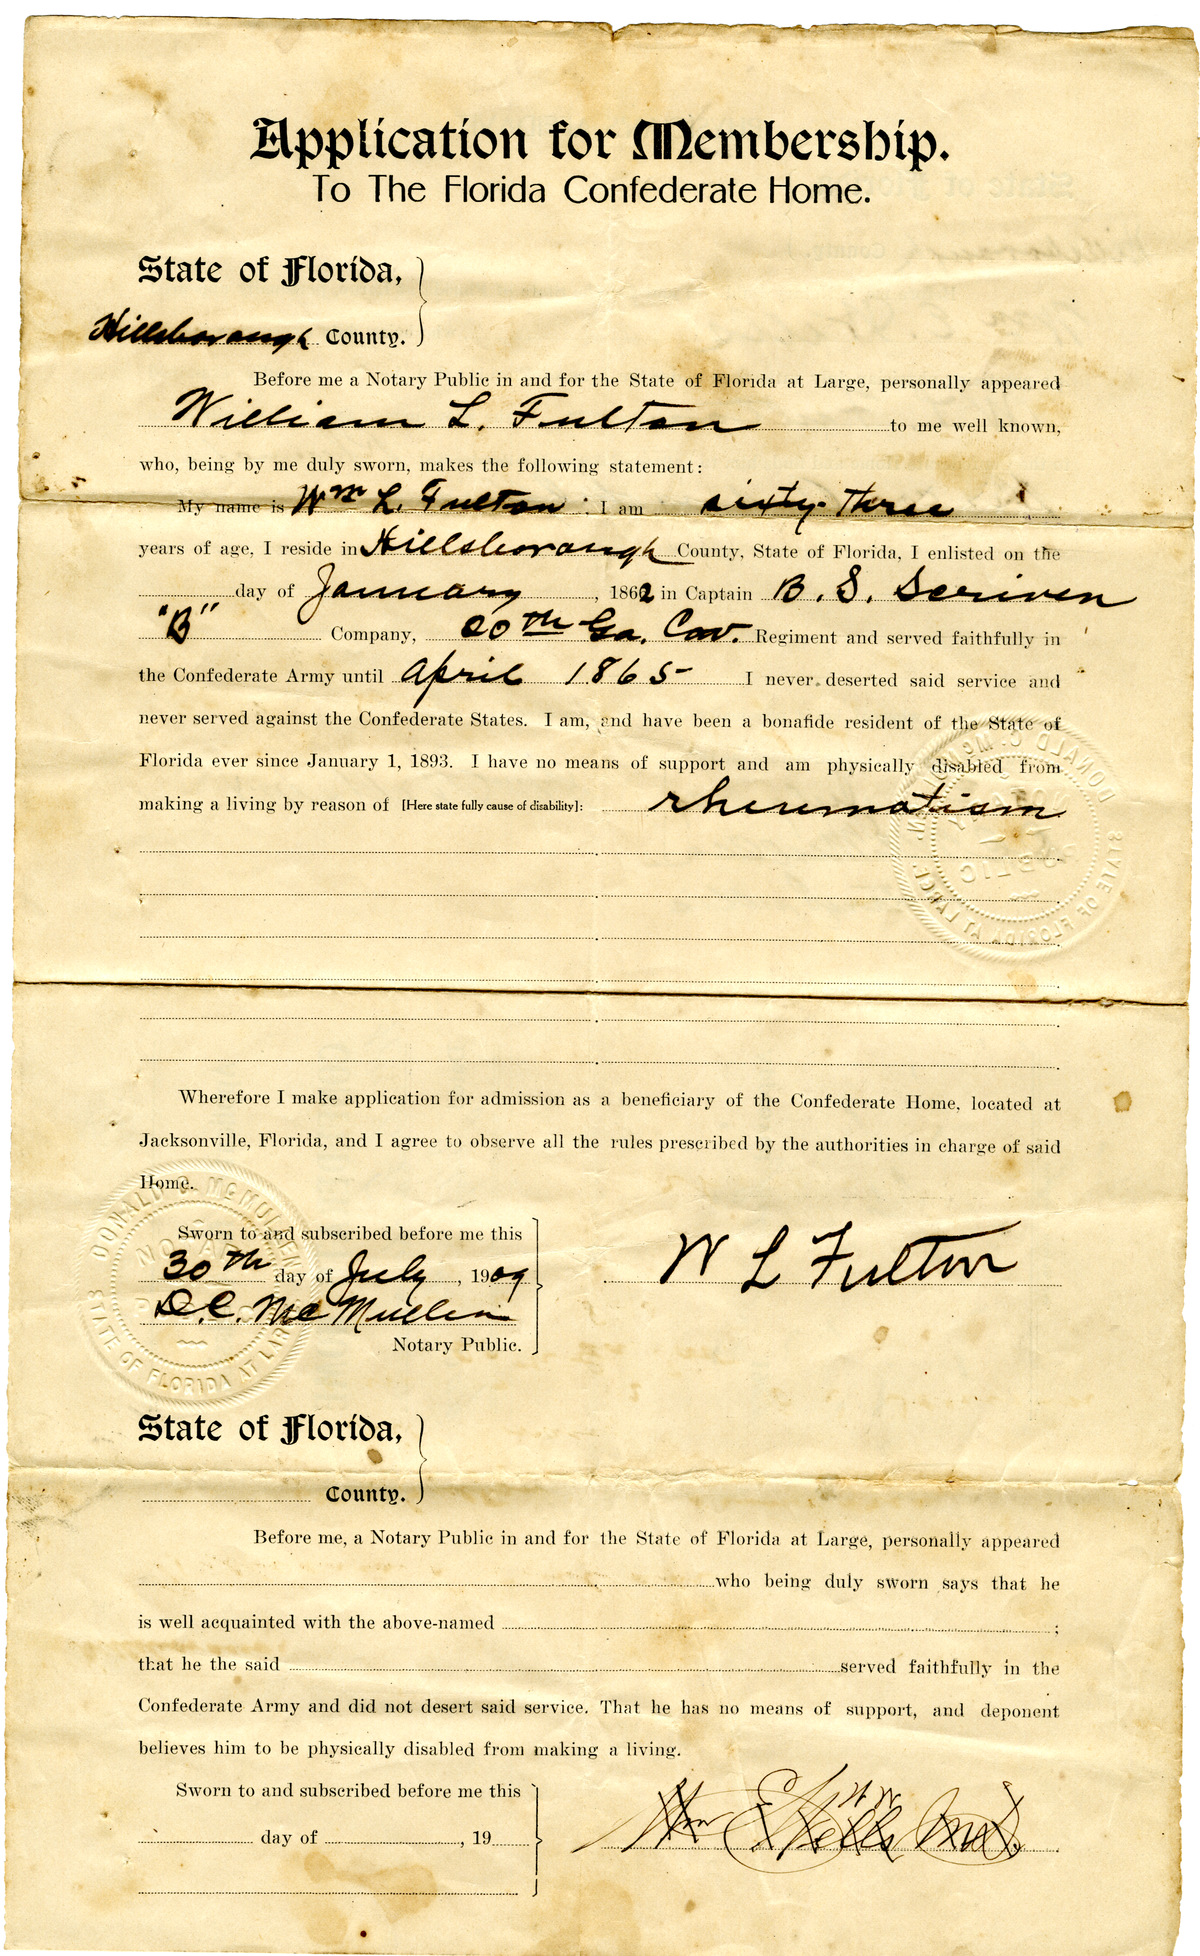 Application for Membership.
To The Florida Confederate Home.
State of Florida,
Hillsborough County.
Before me a Notary Public in and for the State of Florida at Large, personally appeared
William L. Fulton to me well known,
who, being by me duly sworn, makes the following statement:
My name is Wm L. Fulton : I am sixty-three
years of age, I reside in Hillsborough County, State of Florida, I enlisted on the
day of January, 1862 in Captain B. S. Scriven
"B" Company, 20th Ga. Cav. Regiment and served faithfully in
the Confederate Army until April 1865 I never deserted said service and
never served against the Confederate States. I am, and have been a bonafide resident of the State of
Florida ever since January 1, 1893. I have no means of support and am physically disabled from
making a living by reason of [Here state fully cause of disability]: rheumatism
DONALD C. McMULLEN
NOTARY
PUBLIC
STATE OF FLORIDA AT LARGE
Wherefore I make application for admission as a beneficiary of the Confederate Home, located at
Jacksonville, Florida, and I agree to observe all the rules prescribed by the authorities in charge of said
Home.
Sworn to and subscribed before me this
30th day of July, 1909
D.C. McMullen
Notary Public.
W L Fulton
DONALD C. McMULLEN
NOTARY
PUBLIC
STATE OF FLORIDA AT LARGE
State of Florida,
County.
Before me, a Notary Public in and for the State of Florida at Large, personally appeared
who being duly sworn says that he
is well acquainted with the above-named ;
that he the said served faithfully in the
Confederate Army and did not desert said service. That he has no means of support, and deponent
believes him to be physically disabled from making a living.
Sworn to and subscribed before me this
day of , 19
Wm